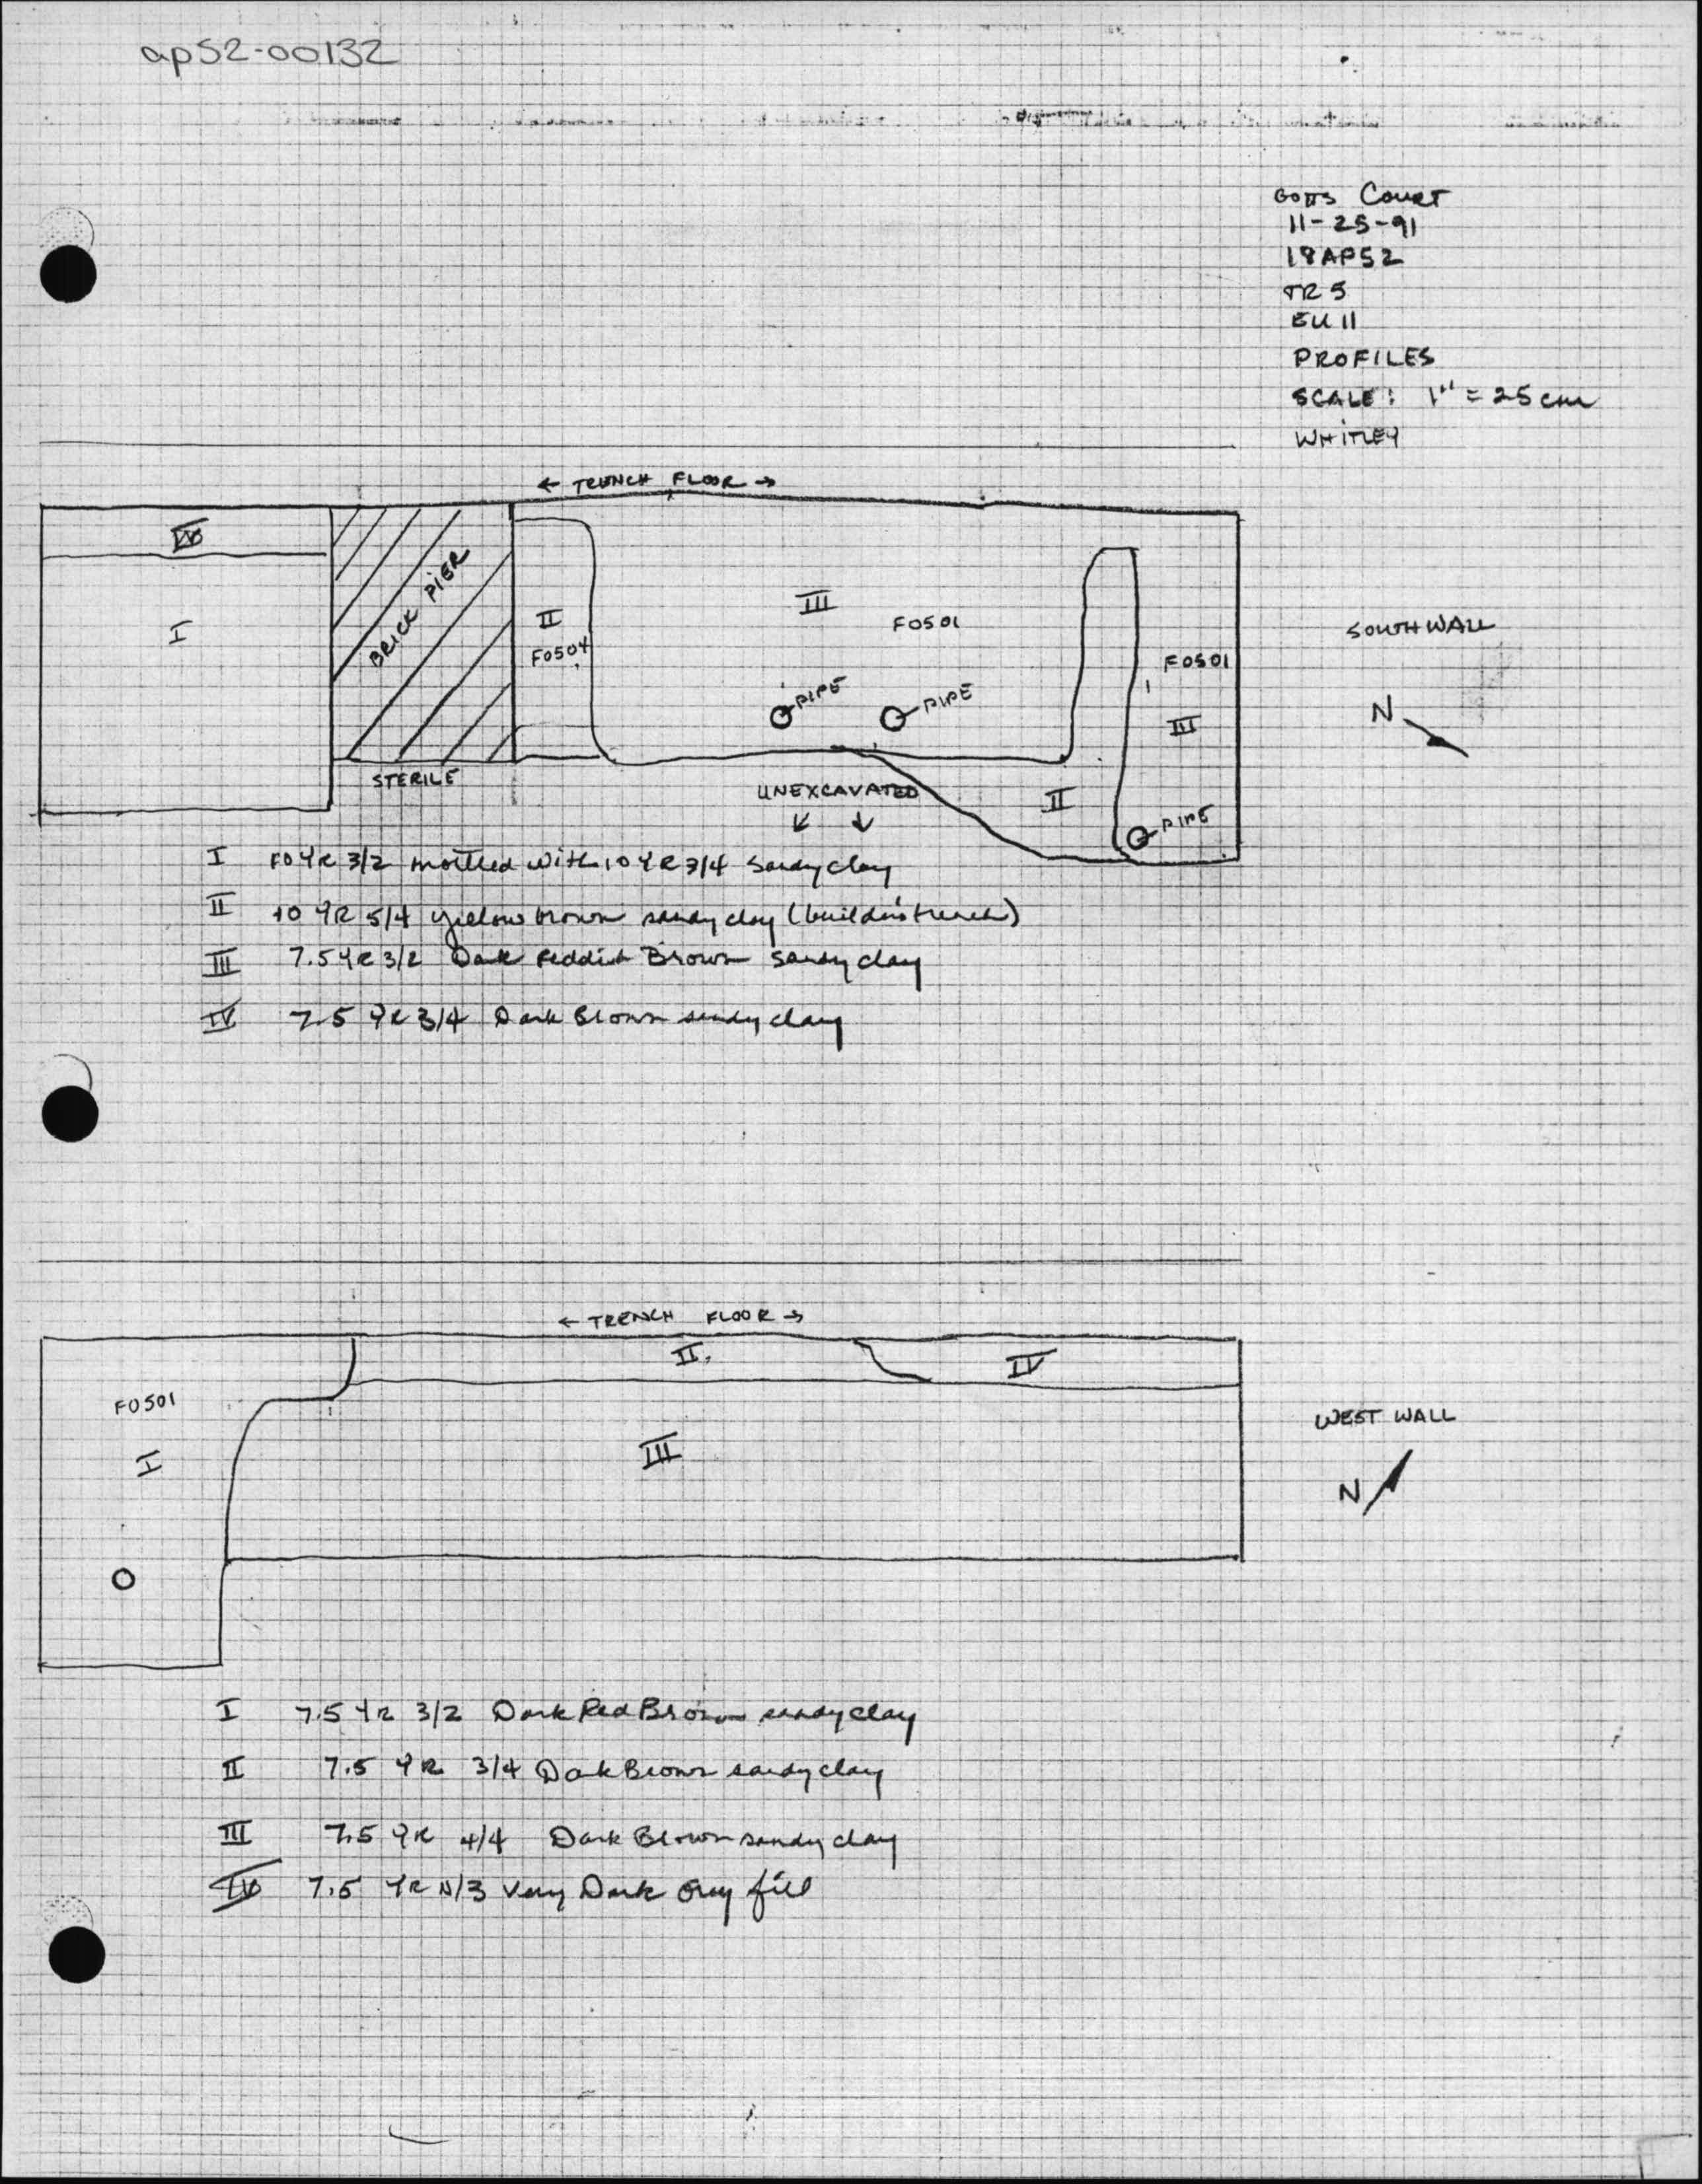 ap52-00132
Gotts Court
11-25-91
18AP52
TR 5
EU 11
PROFILES
SCALE: 1" = 25 cm
WHITLEY
← TRENCH FLOOR →
IV
I
BRICK PIER
II
F0504
III
F0501
F0501
III
PIPE
PIPE
SOUTH WALL
N
STERILE
UNEXCAVATED
↓ ↓
II
PIPE
I 10 YR 3/2 mottled with 10 YR 3/4 sandy clay
II 10 YR 5/4 yellow brown sandy clay (builder's trench)
III 7.5 YR 3/2 Dark Reddish Brown sandy clay
IV 7.5 YR 3/4 Dark Brown sandy clay
← TRENCH FLOOR →
II
IV
F0501
I
III
WEST WALL
N
I 7.5 YR 3/2 Dark Red Brown sandy clay
II 7.5 YR 3/4 Dark Brown sandy clay
III 7.5 YR 4/4 Dark Brown sandy clay
IV 7.5 YR N/3 Very Dark Gray fill